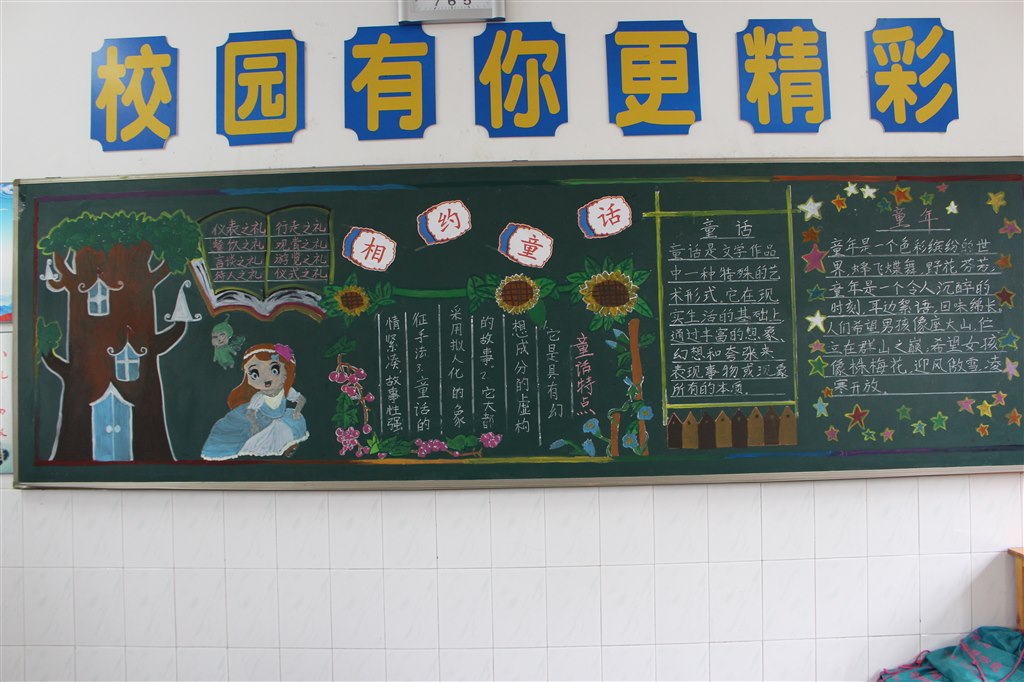 校园有你更精彩
仪表之礼 行走之礼
餐饮之礼 观赏之礼
言谈之礼 游览之礼
待人之礼 仪式之礼
相约童话
童话特点
它是具有幻
想成分的虚构
的故事.2.它大都
采用拟人化的象
征手法3.童话的
情紧凑,故事性强
童话
童话是文学作品
中一种特殊的艺
术形式,它在现
实生活的基础上
通过丰富的想象、
幻想和夸张来
表现事物或现象
所有的本质。
童年
童年是一个色彩缤纷的世
界,蜂飞蝶舞,野花芬芳。
童年是一个令人沉醉的
时刻,耳边絮语,回味绵长。
人们希望男孩像座大山,伫
立在群山之巅,希望女孩
像株梅花,迎风傲雪,凌
寒开放。